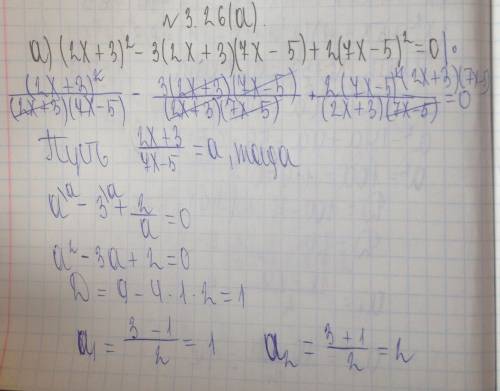 N 3.26(а).
а) (2x+3)² - 3(2x+3)(7x-5) + 2(7x-5)² = 0 | :
(2x+3)²/((2x+3)(7x-5)) - 3(2x+3)(7x-5)/((2x+3)(7x-5)) + 2(7x-5)²/((2x+3)(7x-5)) = 0 (2x+3)(7x-5)
Пусть (2x+3)/(7x-5) = a, тогда
a^a - 3^a + 2/a = 0
a² - 3a + 2 = 0
D = 9 - 4 · 1 · 2 = 1
a₁ = (3 - 1)/2 = 1 a₂ = (3 + 1)/2 = 2